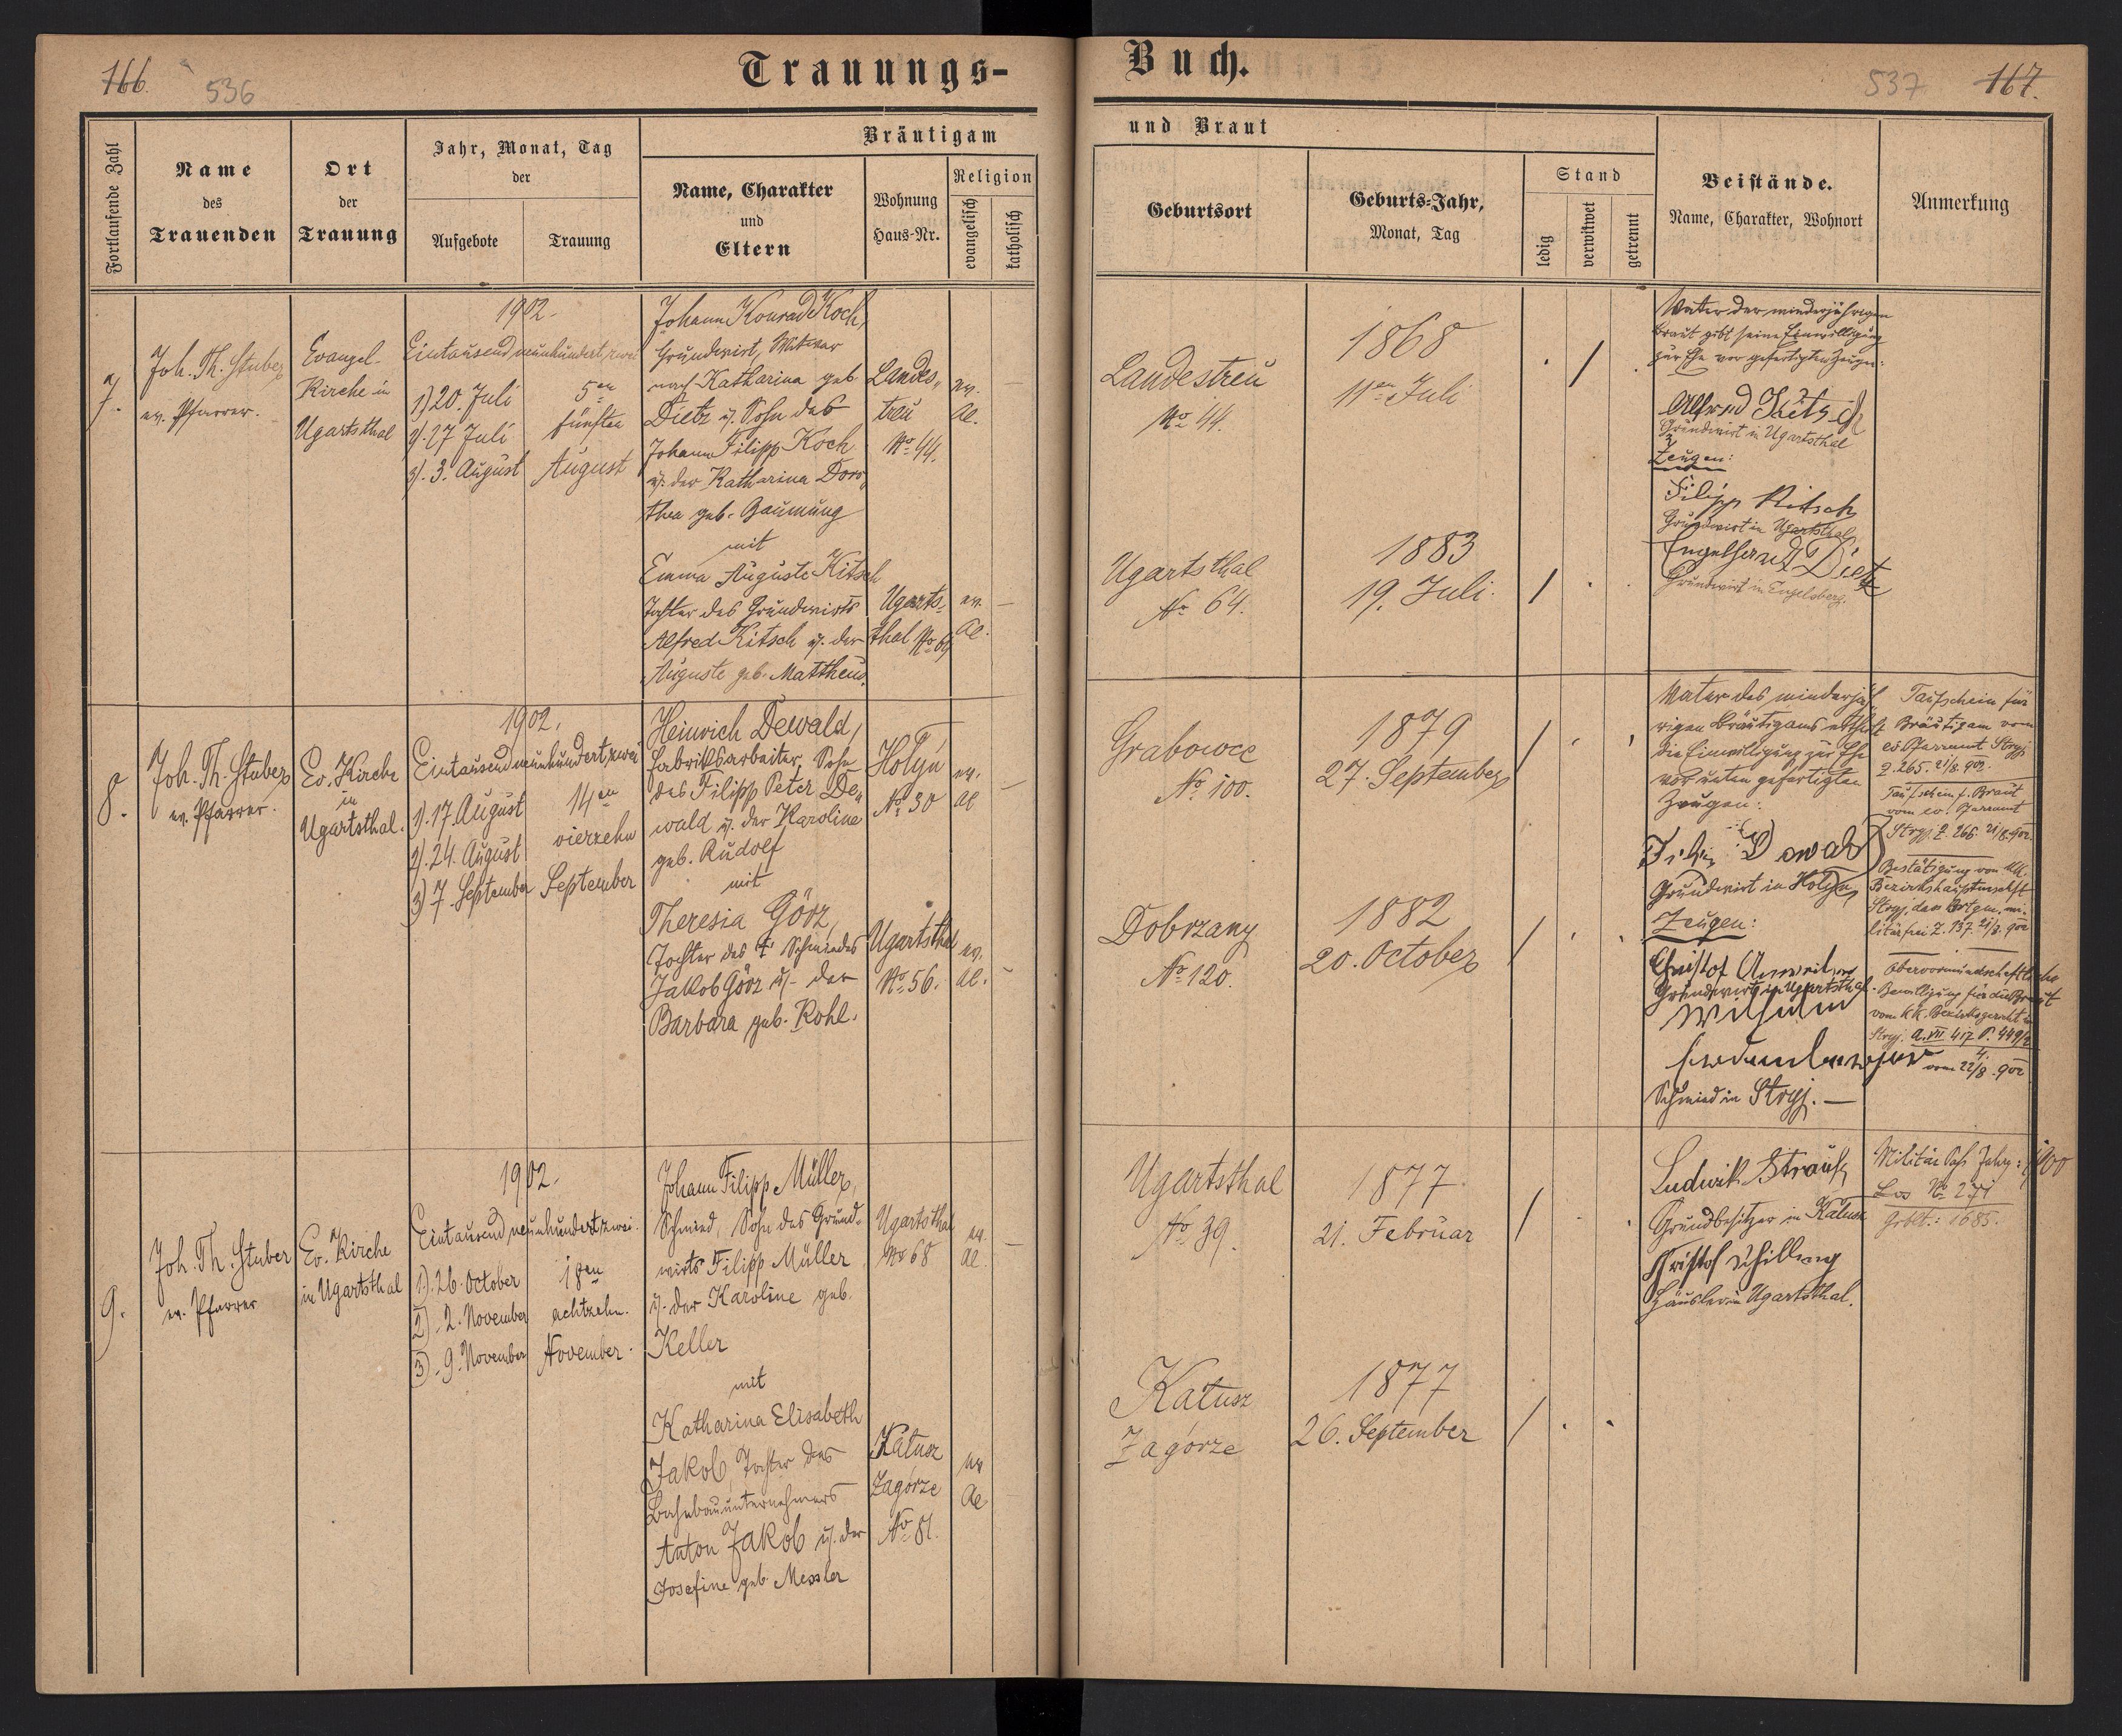 166.
536
Trauungs-
Buch.
537
167.
Fortlaufende Zahl
Name
des
Trauenden
Ort
der
Trauung
Jahr, Monat, Tag
der
Aufgebote
Trauung
Bräutigam
Name, Charakter
und
Eltern
Wohnung
Haus-Nr.
Religion
evangelisch
katholisch
und Braut
Geburtsort
Geburts-Jahr,
Monat, Tag
Stand
ledig
verwitwet
getrennt
Beistände.
Name, Charakter, Wohnort
Anmerkung
7.
Joh. Th. Stuber
ev. Pfarrer.
Evangel.
Kirche in
Ugartsthal
1902.
Eintausendneunhundertzwei
1) 20. Juli
2). 27 Juli
3). 3. August
5en
fünften
August
Johann Konrad Koch,
Grundwirt, Witwer
nach Katharina geb.
Dietz u. Sohn des
Johann Filipp Koch
u. der Katharina Doro,
thea geb. Gaumung
mit
Emma Auguste Kitsch
Tochter des Grundwirts
Alfred Kitsch u. der
Auguste geb. Mattheus.
Landes,,
treu
No 44.
Ugarts-
thal No 64
ev.
AC.
ev. —
AC.
Landestreu
No 44.
Ugartsthal
No 64.
1868
11en Juli
1883
19. Juli.
Vater der minderjährigen
Braut gibt seine Einwilligung
zur Ehe vor gefertigten Zeugen:
Alfred Kitsch
Grundwirt in Ugartsthal
Zeugen:
Filipp Kitsch
Grundwirt in Ugartsthal
Engelhardt Dietz
Grundwirt in Engelsberg.
8.
Joh. Th. Stuber
ev. Pfarrer.
Ev. Kirche
in
Ugartsthal.
1902.
Eintausendneunhundertzwei
1). 17. August
2). 24. August
3) 7. September
14en
vierzehn
September
Heinrich Dewald,
Fabriksarbeiter, Sohn
des Filipp Peter De,,
wald u. der Karoline
geb. Rudolf
mit
Theresia Görz,
Tochter des † Schmiedes
Jakob Görz u. der
Barbara geb. Kohl.
Hołyń
No. 30
Ugartsthal
No. 56.
ev.
AC
ev.
AC.
Grabowce
No 100.
Dobrzany
No 120.
1879
27. September
1882
20. October
Vater des minderjäh,
rigen Bräutigams ertheilt
die Einwilligung zur Ehe
vor unten gefertigten
Zeugen:
Grundwirt in Hołyń
Zeugen:
Christof
Grundwirt in Ugartsthal.
Wilhelm
Schmied in Stryj. —
Taufschein für
Bräutigam vom
ev. Pfarramt Stryj
Z. 265. 21/8. 902.
Taufschein f. Braut
vom ev. Pfarramt
Stryj. Z. 266. 21/8. 902.
Bestätigung von kk.
Bezirkshauptmschft
Stryj, dass Brtgm. mi-
litärfrei Z. 137. 21/8. 902
Obervormundschaftliche
Bewilligung für die Braut
vom kk. Bezirksgericht in
Stryj. A. VII 417 P. 449/2
4.
vom 22/8. 902
9.
Joh. Th. Stuber
ev. Pfarrer
Ev. Kirche
in Ugartsthal
1902.
Eintausendneunhundertzwei.
1). 26. October
2). 2. November
3). 9. November
18en
achtzehn.
November.
Johann Filipp Müller,
Schmied, Sohn des Grund-
wirts Filipp Müller
u. der Karoline geb.
Keller
mit
Katharina Elisabeth
Jakob, Tochter des
Bahnbauunternehmers
Anton Jakob u. der
Josefine geb. Messler
Ugartsthal
No 68
Kałusz
Zagórze
No 81.
ev.
AC.
ev
AC
Ugartsthal
No 39.
Kałusz
Zagórze
1877
21. Februar
1877
26. September
Ludwik Strauß
Grundbesitzer in Kałusz
Kristof Schilling
Häusler in Ugartsthal.
Militär Pass Jahrg: 1900
Los No 271
Grbbl.: 1685.